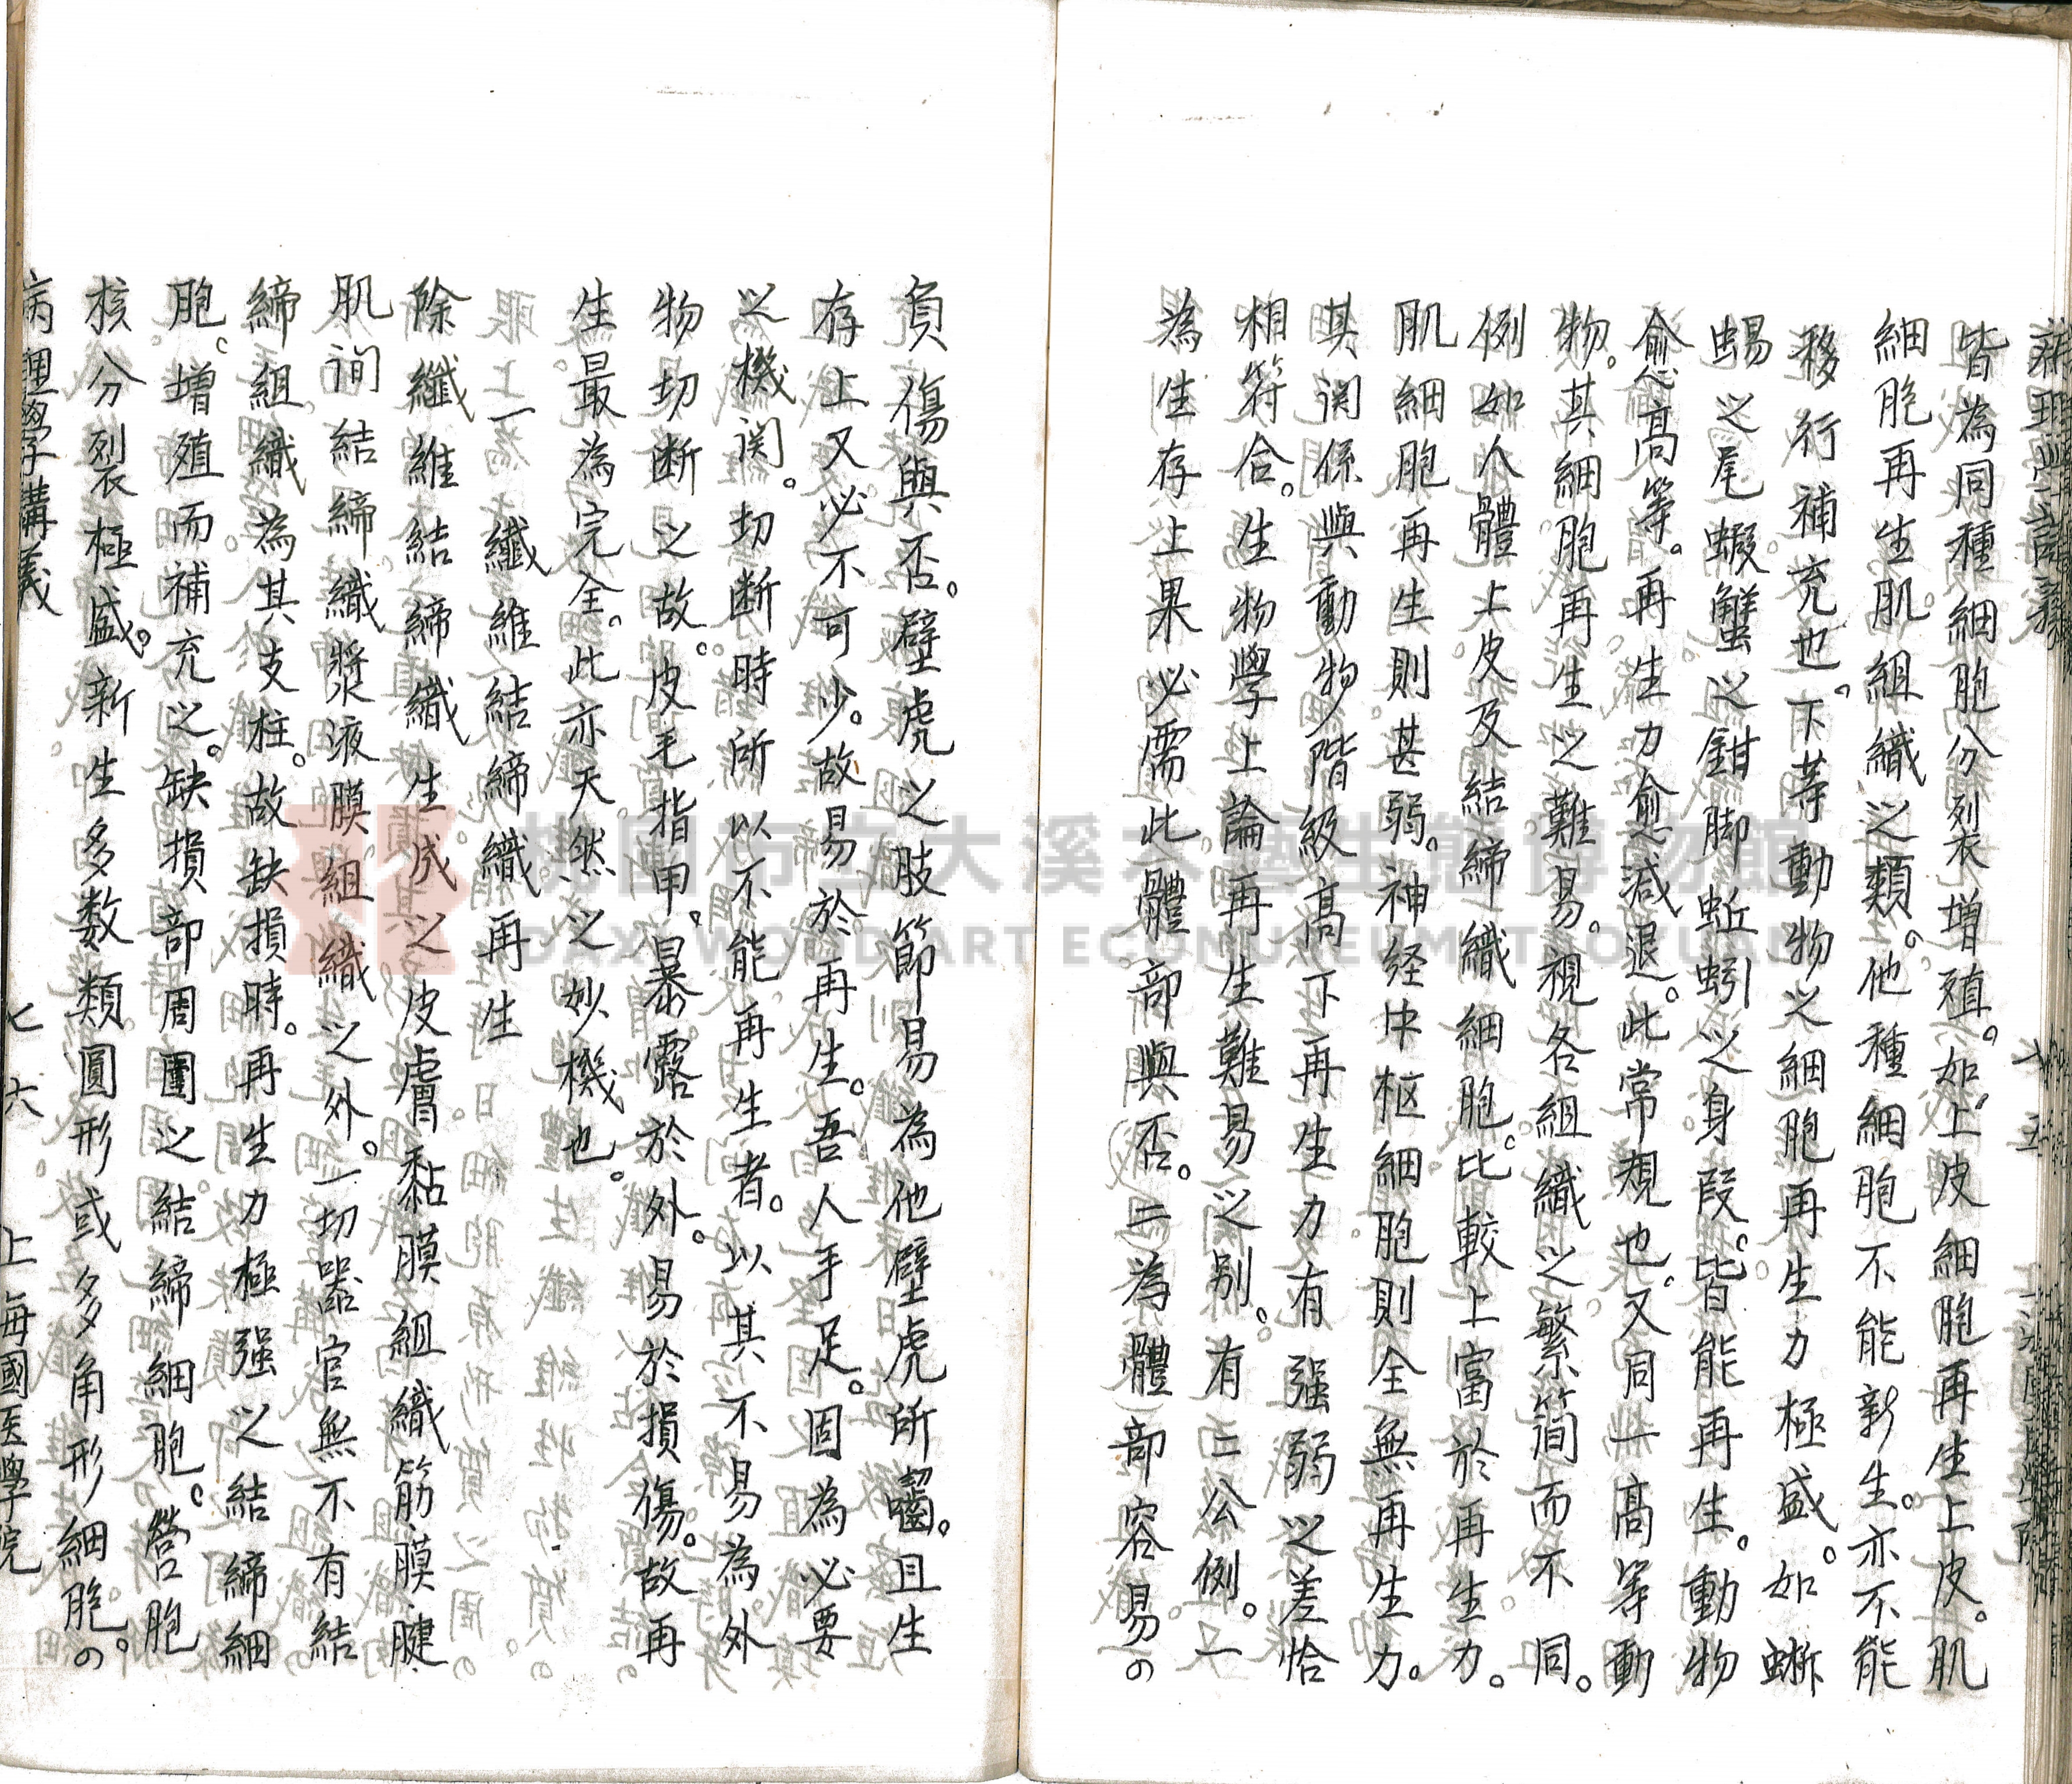 病理學講義 七五 上海國医學院
皆為同種細胞分列增殖。如上皮細胞再生上皮。肌
細胞再生肌組織之類。他種細胞不能新生。亦不能
移行補充也。下等動物之細胞再生力極盛。如蜥
蜴之尾蝦蟹之鉗脚蚯蚓之身段。皆能再生。動物
愈高等。再生力愈減退。此常規也。又同一高等動
物。其細胞再生之難易。視各組織之繁簡而不同。
例如人體上皮及結締織細胞。比較上富於再生力。
肌細胞再生則甚弱。神経中枢細胞則全無再生力。
其関係與動物階級高下再生力有强弱之差恰
相符合。生物學上論再生難易之别。有二公例。一
為生存上果必需此體部與否。二為體部容易の
負傷與否。壁虎之肢節易為他壁虎所嚙。且生
存上又必不可少。故易於再生。吾人手足。固為必要
之機関。切断時所以不能再生者。以其不易為外
物切断之故。皮毛指甲。暴露於外。易於損傷。故再
生最為完全。此亦天然之妙機也。
一 纖維結締織再生
除纖維結締織生成之皮膚黏膜組織筋膜腱
肌间結締織漿液膜組織之外。一切器官無不有結
締組織為其支柱。故缺損時。再生力極强之結締細
胞。增殖而補充之。缺損部周圍之結締細胞。營胞
核分裂極盛。新生多数類圓形或多角形細胞。の
病理學講義 七六 上海國医學院